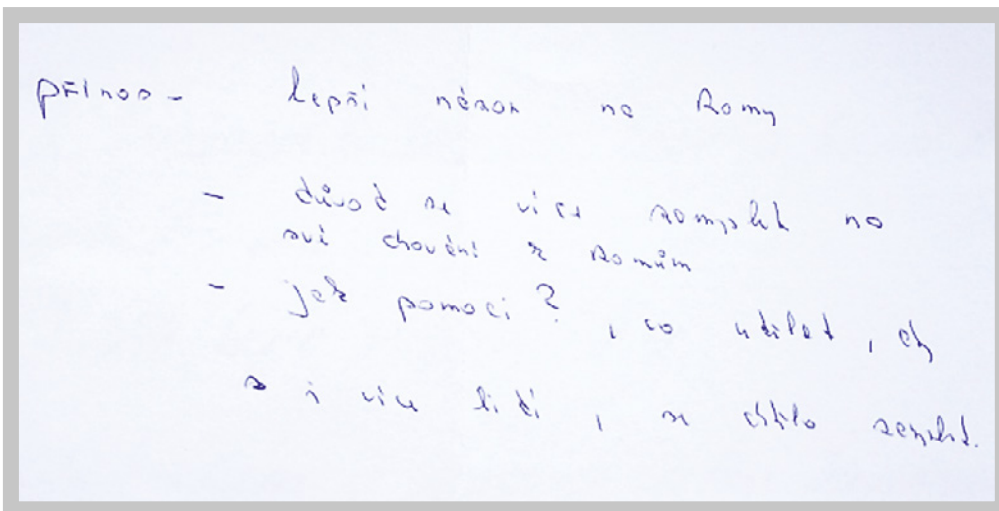 přínos - lepší názor na Romy
- důvod se více zamyslet na
své chování k Romům
- jak pomoci? , co udělat , aby
se i více lidí , se chtělo zamyslet.